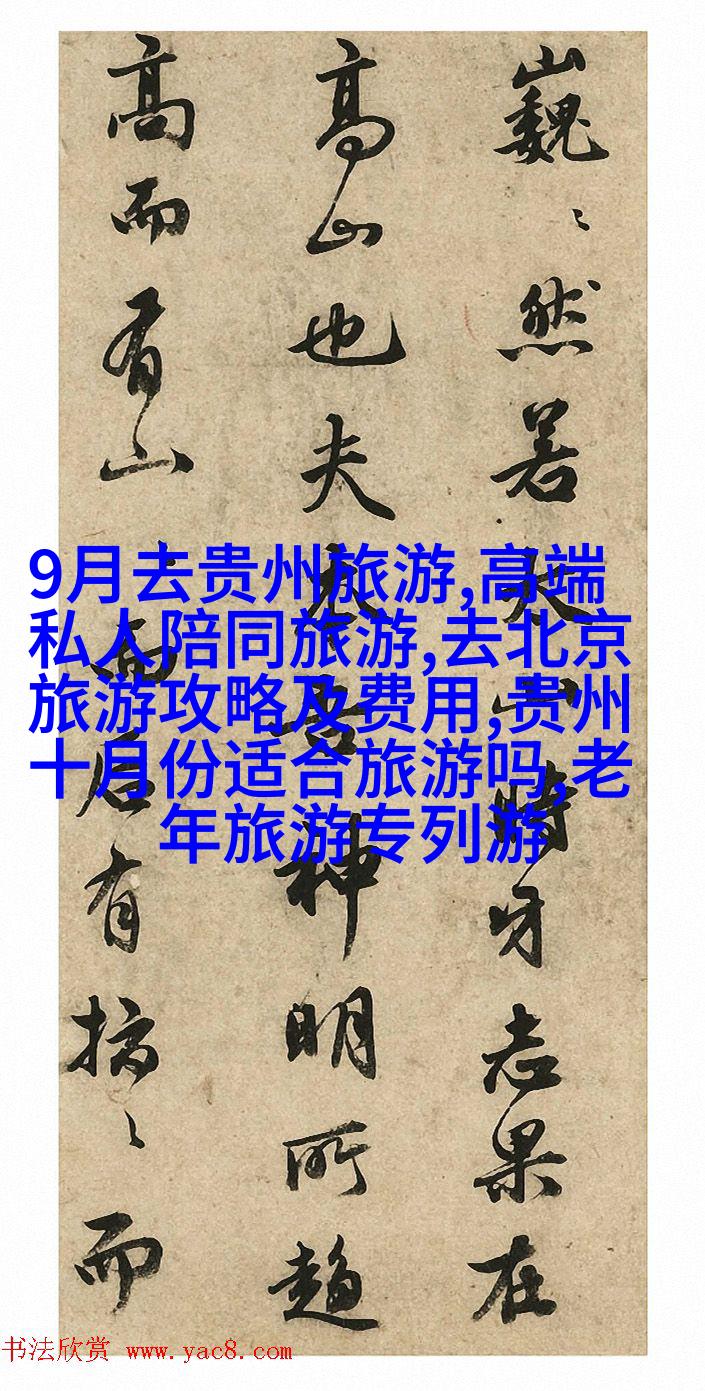 巍〻然若大山時牙志果在
高山也夫吾神明所趨
高而有山而后有〻而
9月去贵州旅游,高端
私人陪同旅游,去北京
旅游攻略及费用,贵州
十月份适合旅游吗,老
年旅游专列游
书法欣赏 www.yac8.com